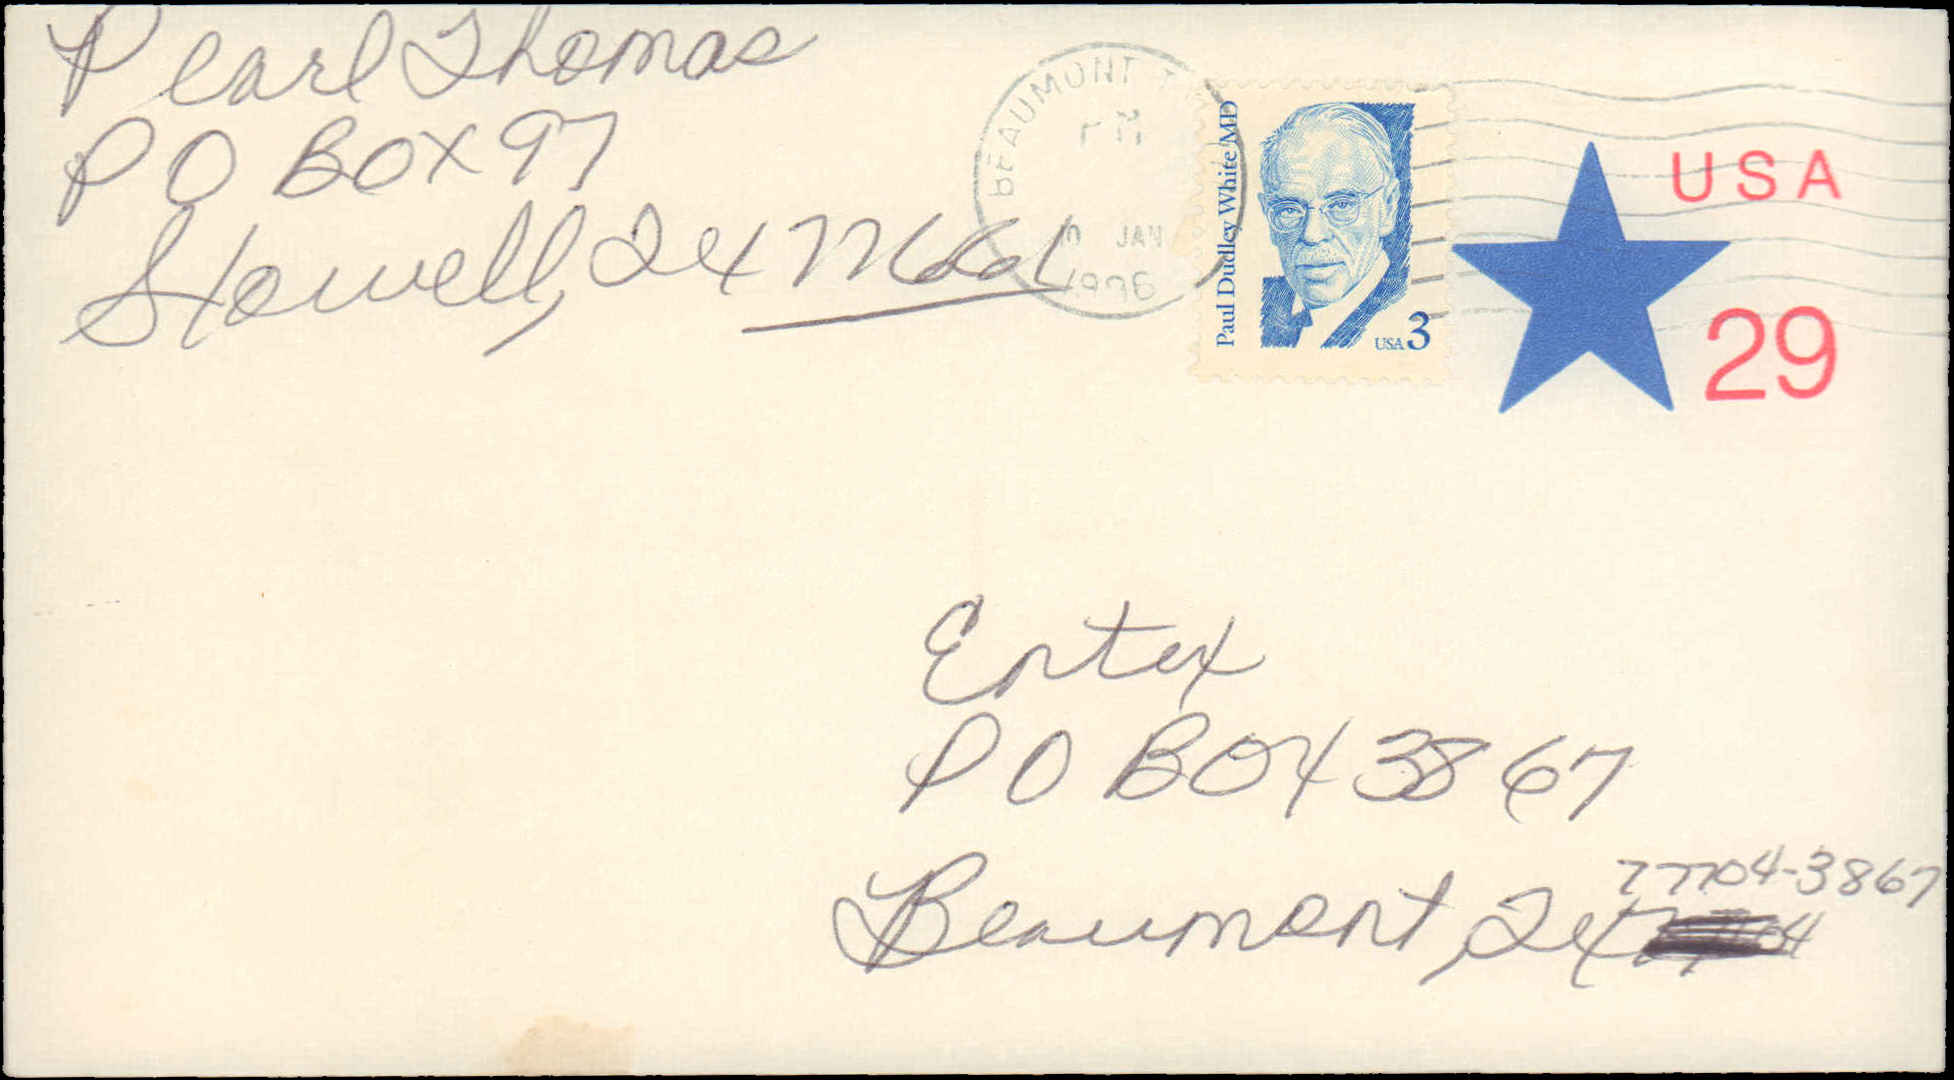 Pearl Thomas
PO BOX 97
Stowell, Tex 77661
BEAUMONT T
PM
JAN
1996
Paul Dudley White MD
USA 3
USA
29
Entex
PO BOX 3867
Beaumont, Tex
77704-3867